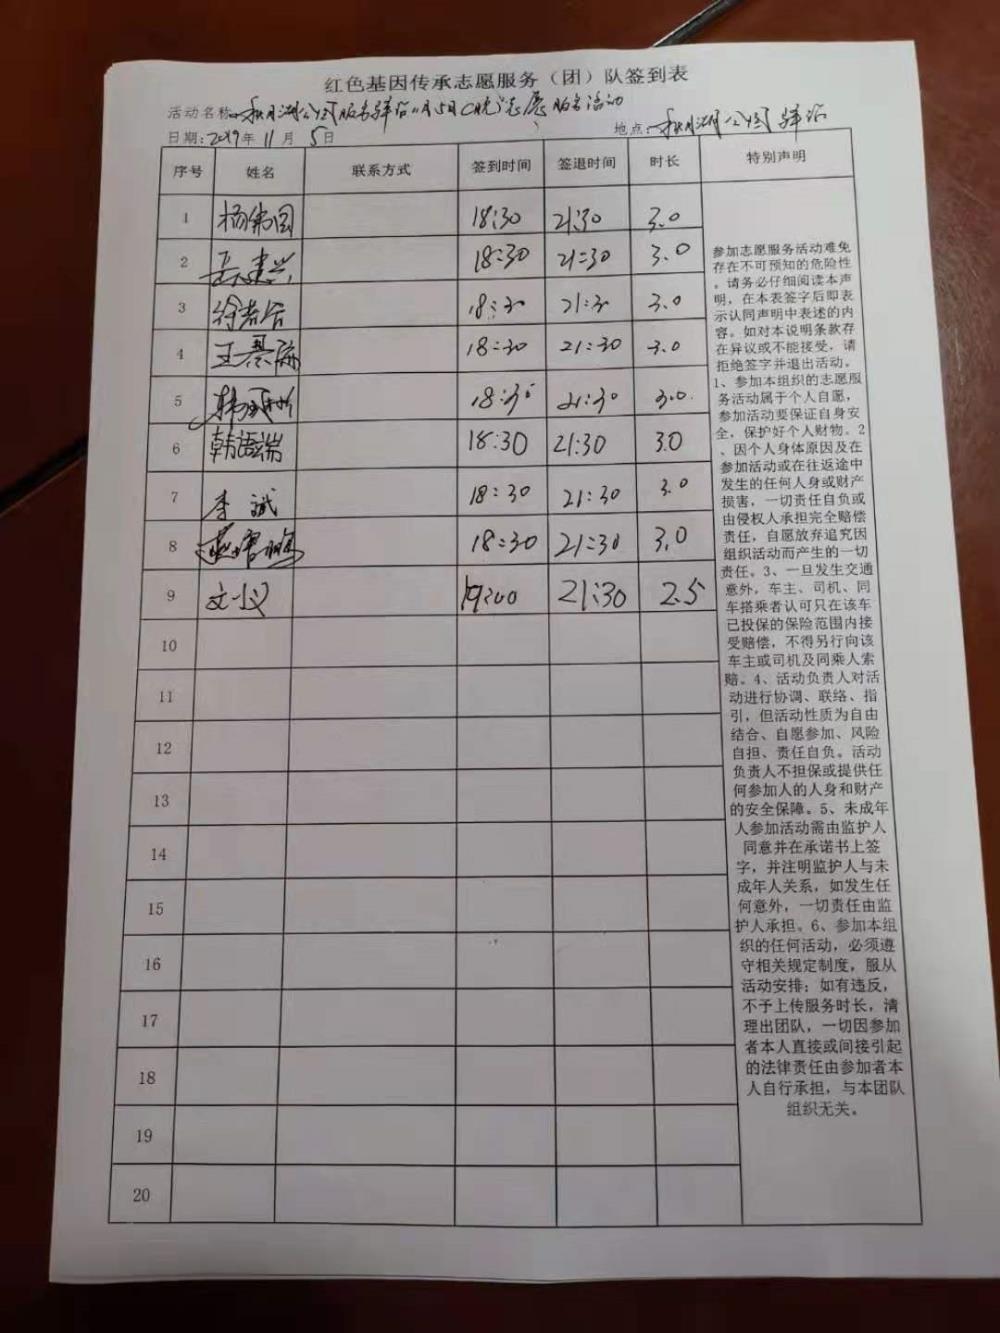 红色基因传承志愿服务（团）队签到表
活动名称：秋月湖公园服务驿站11月5日（晚）志愿服务活动
日期：2019年11月5日 地点：秋月湖公园驿站
序号 姓名 联系方式 签到时间 签退时间 时长 特别声明
1 杨伟国 18:30 21:30 3.0
2 岳建兴 18:30 21:30 3.0
3 18:30 21:30 3.0
4 王 18:30 21:30 3.0
5 韩 18:30 21:30 3.0
6 韩语端 18:30 21:30 3.0
7 李斌 18:30 21:30 3.0
8 18:30 21:30 3.0
9 文小义 19:00 21:30 2.5
10
11
12
13
14
15
16
17
18
19
20
参加志愿服务活动难免
存在不可预知的危险性
。请务必仔细阅读本声
明，在本表签字后即表
示认同声明中表述的内
容。如对本说明条款存
在异议或不能接受，请
拒绝签字并退出活动。
1、参加本组织的志愿服
务活动属于个人自愿，
参加活动要保证自身安
全，保护好个人财物。2
、因个人身体原因及在
参加活动或在往返途中
发生的任何人身或财产
损害，一切责任自负或
由侵权人承担完全赔偿
责任，自愿放弃追究因
组织活动而产生的一切
责任。3、一旦发生交通
意外，车主、司机、同
车搭乘者认可只在该车
已投保的保险范围内接
受赔偿，不得另行向该
车主或司机及同乘人索
赔。4、活动负责人对活
动进行协调、联络、指
引，但活动性质为自由
结合、自愿参加、风险
自担、责任自负。活动
负责人不担保或提供任
何参加人的人身和财产
的安全保障。5、未成年
人参加活动需由监护人
同意并在承诺书上签
字，并注明监护人与未
成年人关系，如发生任
何意外，一切责任由监
护人承担。6、参加本组
织的任何活动，必须遵
守相关规定制度，服从
活动安排；如有违反，
不予上传服务时长，清
理出团队，一切因参加
者本人直接或间接引起
的法律责任由参加者本
人自行承担，与本团队
组织无关。